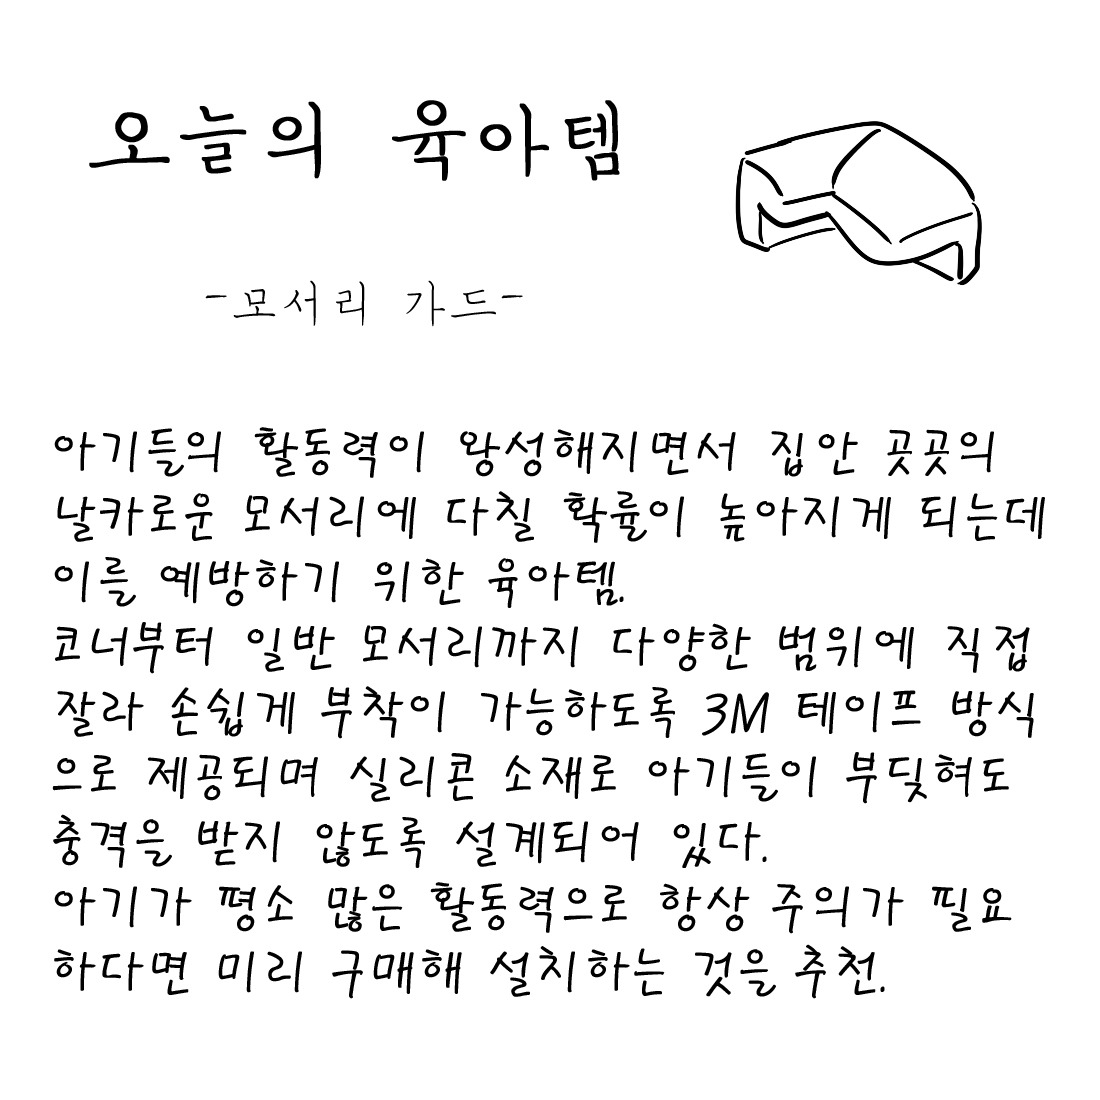 오늘의 육아템
-모서리 가드-
아기들의 활동력이 왕성해지면서 집안 곳곳의
날카로운 모서리에 다칠 확률이 높아지게 되는데
이를 예방하기 위한 육아템.
코너부터 일반 모서리까지 다양한 범위에 직접
잘라 손쉽게 부착이 가능하도록 3M 테이프 방식
으로 제공되며 실리콘 소재로 아기들이 부딪혀도
충격을 받지 않도록 설계되어 있다.
아기가 평소 많은 활동력으로 항상 주의가 필요
하다면 미리 구매해 설치하는 것을 추천.